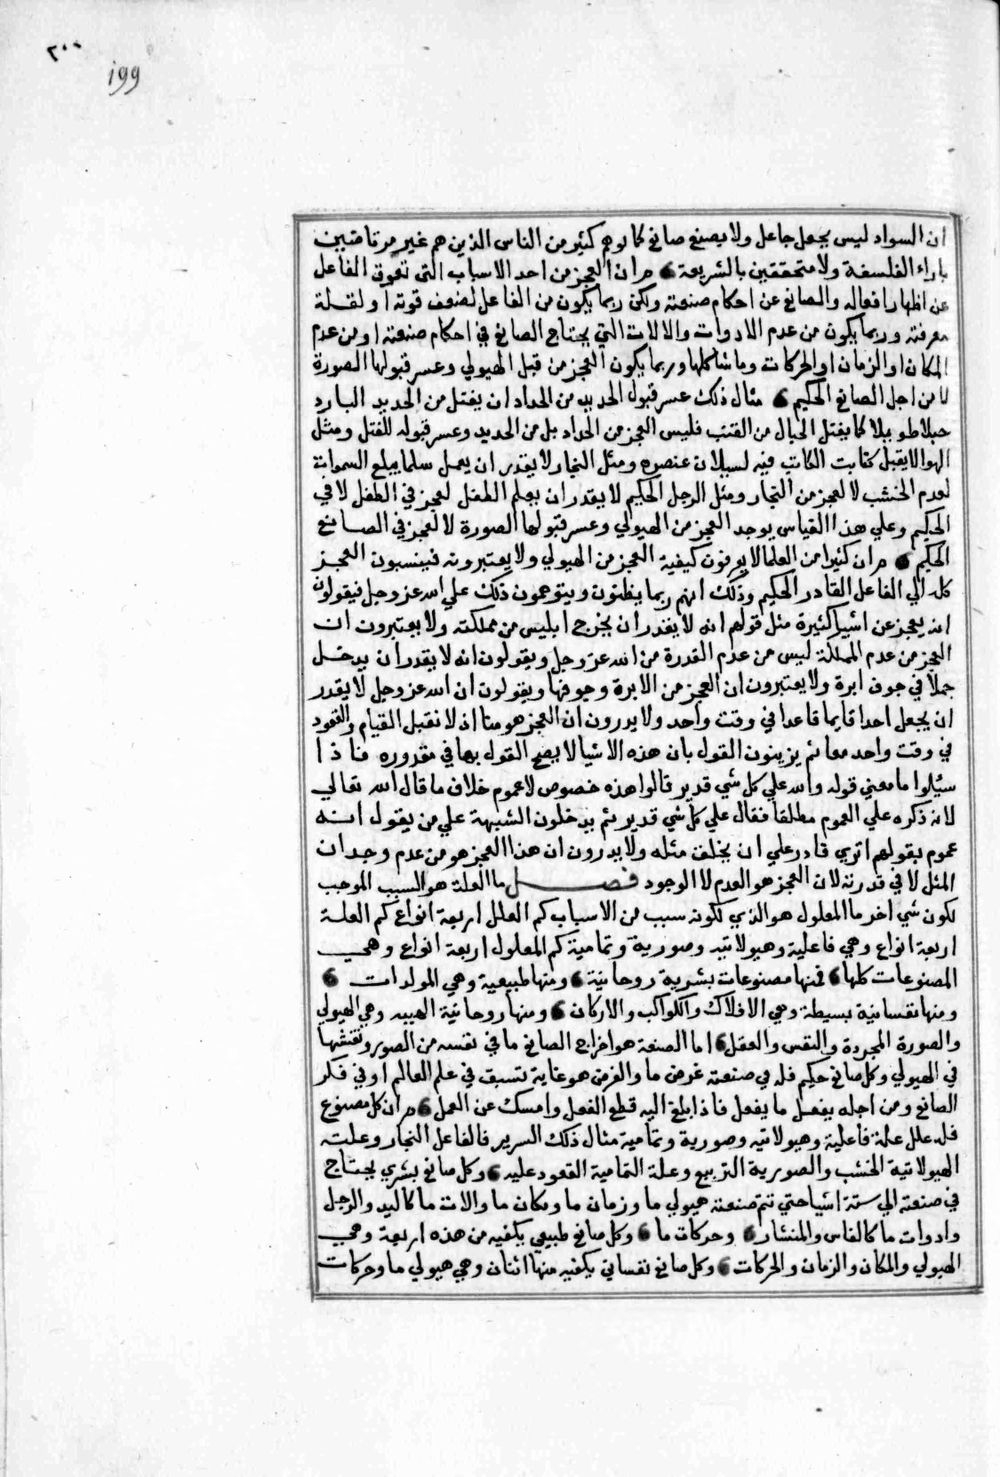 ٢٠٠
199
ان السواد ليس بجعل جاعل ولا بصنع صانع كما توهم كثير من الناس الذين هم غير مرتاضين
باراء الفلسفة ولا متحققين بالشريعة ان العجز من احد الاسباب التى تعوق الفاعل
عن اظهار افعاله والصانع عن احكام صنعته ولكن ربما يكون من الفاعل لضعف قوته او لقلة
معرفته وربما يكون من عدم الادوات والالات التي يحتاج الصانع في احكام صنعته او من عدم
المكان او الزمان او الحركات وما شاكلها وربما يكون العجز من قبل الهيولي وعسر قبولها الصورة
لا من اجل الصانع الحكيم مثال ذلك عسر قبول الحديد من الحداد ان يفتل من الحديد البارد
حبلا طويلا كما يفتل الحبال من القنب فليس العجز من الحداد بل من الحديد وعسر قبوله للفتل ومثل
الهوا لا يقبل كتابت الكاتب فيه لسيلان عنصره ومثل النجار لا يقدر ان يعمل سلما يبلغ السموات
لعدم الخشب لا لعجز من النجار ومثل الرجل الحكيم لا يقدر ان يعلم الطفل لعجز في الطفل لا في
الحكيم وعلي هذا القياس يوجد العجز من الهيولي وعسر قبولها الصورة لا لعجز في الصانع
الحكيم ان كثيرا من العلما لا يعرفون كيفية العجز من الهيولي ولا يعتبرونه فينسبون العجز
كله الي الفاعل القادر الحكيم وذلك انهم ربما يظنون ويتوهمون ذلك علي الله عز وجل فيقولون
انه يعجز عن اشيا كثيرة مثل قولهم انه لا يقدر ان يخرج ابليس من مملكته ولا يعتبرون ان
العجز من عدم المملكة ليس من عدم القدرة من الله عز وجل ويقولون انه لا يقدر ان يدخل
جملا في جوف ابرة ولا يعتبرون ان العجز من الابرة وجوفها ويقولون ان الله عز وجل لا يقدر
ان يجعل احدا قايما قاعدا في وقت واحد ولا يدرون ان العجز هو منا اذ لا نقبل القيام والقعود
في وقت واحد معا ثم يزينون القول بان هذه الاشيا لا يصح القول بها في مقدوره فاذا
سئلوا ما معني قوله والله علي كل شي قدير قالوا هذه خصوص لا عموم خلاف ما قال الله تعالي
لانه ذكره علي العموم مطلقا فقال علي كل شي قدير ثم يدخلون الشبهة علي من يقول انه
عموم بقولهم اتري قادر علي ان يخلق مثله ولا يدرون ان هذا العجز هو من عدم وجدان
المثل لا في قدرته لان العجز هو العدم لا الوجود فصل ما العلة هو السبب الموجب
لكون شي اخر ما المعلول هو الذي لكونه سبب من الاسباب كم العلل اربعة انواع كم العلة
اربعة انواع وهي فاعلية وهيولانيه وصورية وتمامية كم المعلول اربعة انواع وهي
المصنوعات كلها فمنها مصنوعات بشرية روحانية ومنها طبيعية وهي المولدات
ومنها نفسانية بسيطة وهي الافلاك والكواكب والاركان ومنها روحانية الهيه وهي الهيولي
والصورة المجردة والنفس والعقل اما الصنعة هو اخراج الصانع ما في نفسه من الصور ونقشها
في الهيولي وكل صانع حكيم فله في صنعته غرض ما والغرض هو غاية تسبق في علم العالم او في فكر
الصانع ومن اجله يفعل ما يفعل فاذا بلغ اليه قطع الفعل وامسك عن العمل ان كل مصنوع
فله علل علة فاعلية وهيولانيه وصورية وتمامية مثال ذلك السرير فالفاعل النجار وعلته
الهيولانية الخشب والصورية التربيع وعلة التمامية القعود عليه وكل صانع بشري يحتاج
في صنعته الي ستة اشيا حتي تتم صنعته هيولي ما وزمان ما ومكان ما والات ما كاليد والرجل
وادوات ما كالفاس والمنشار وحركات ما وكل صانع طبيعي يكفيه من هذه اربعة وهي
الهيولي والمكان والزمان والحركات وكل صانع نفساني يكفيه منها اثنان وهي هيولي ما وحركات